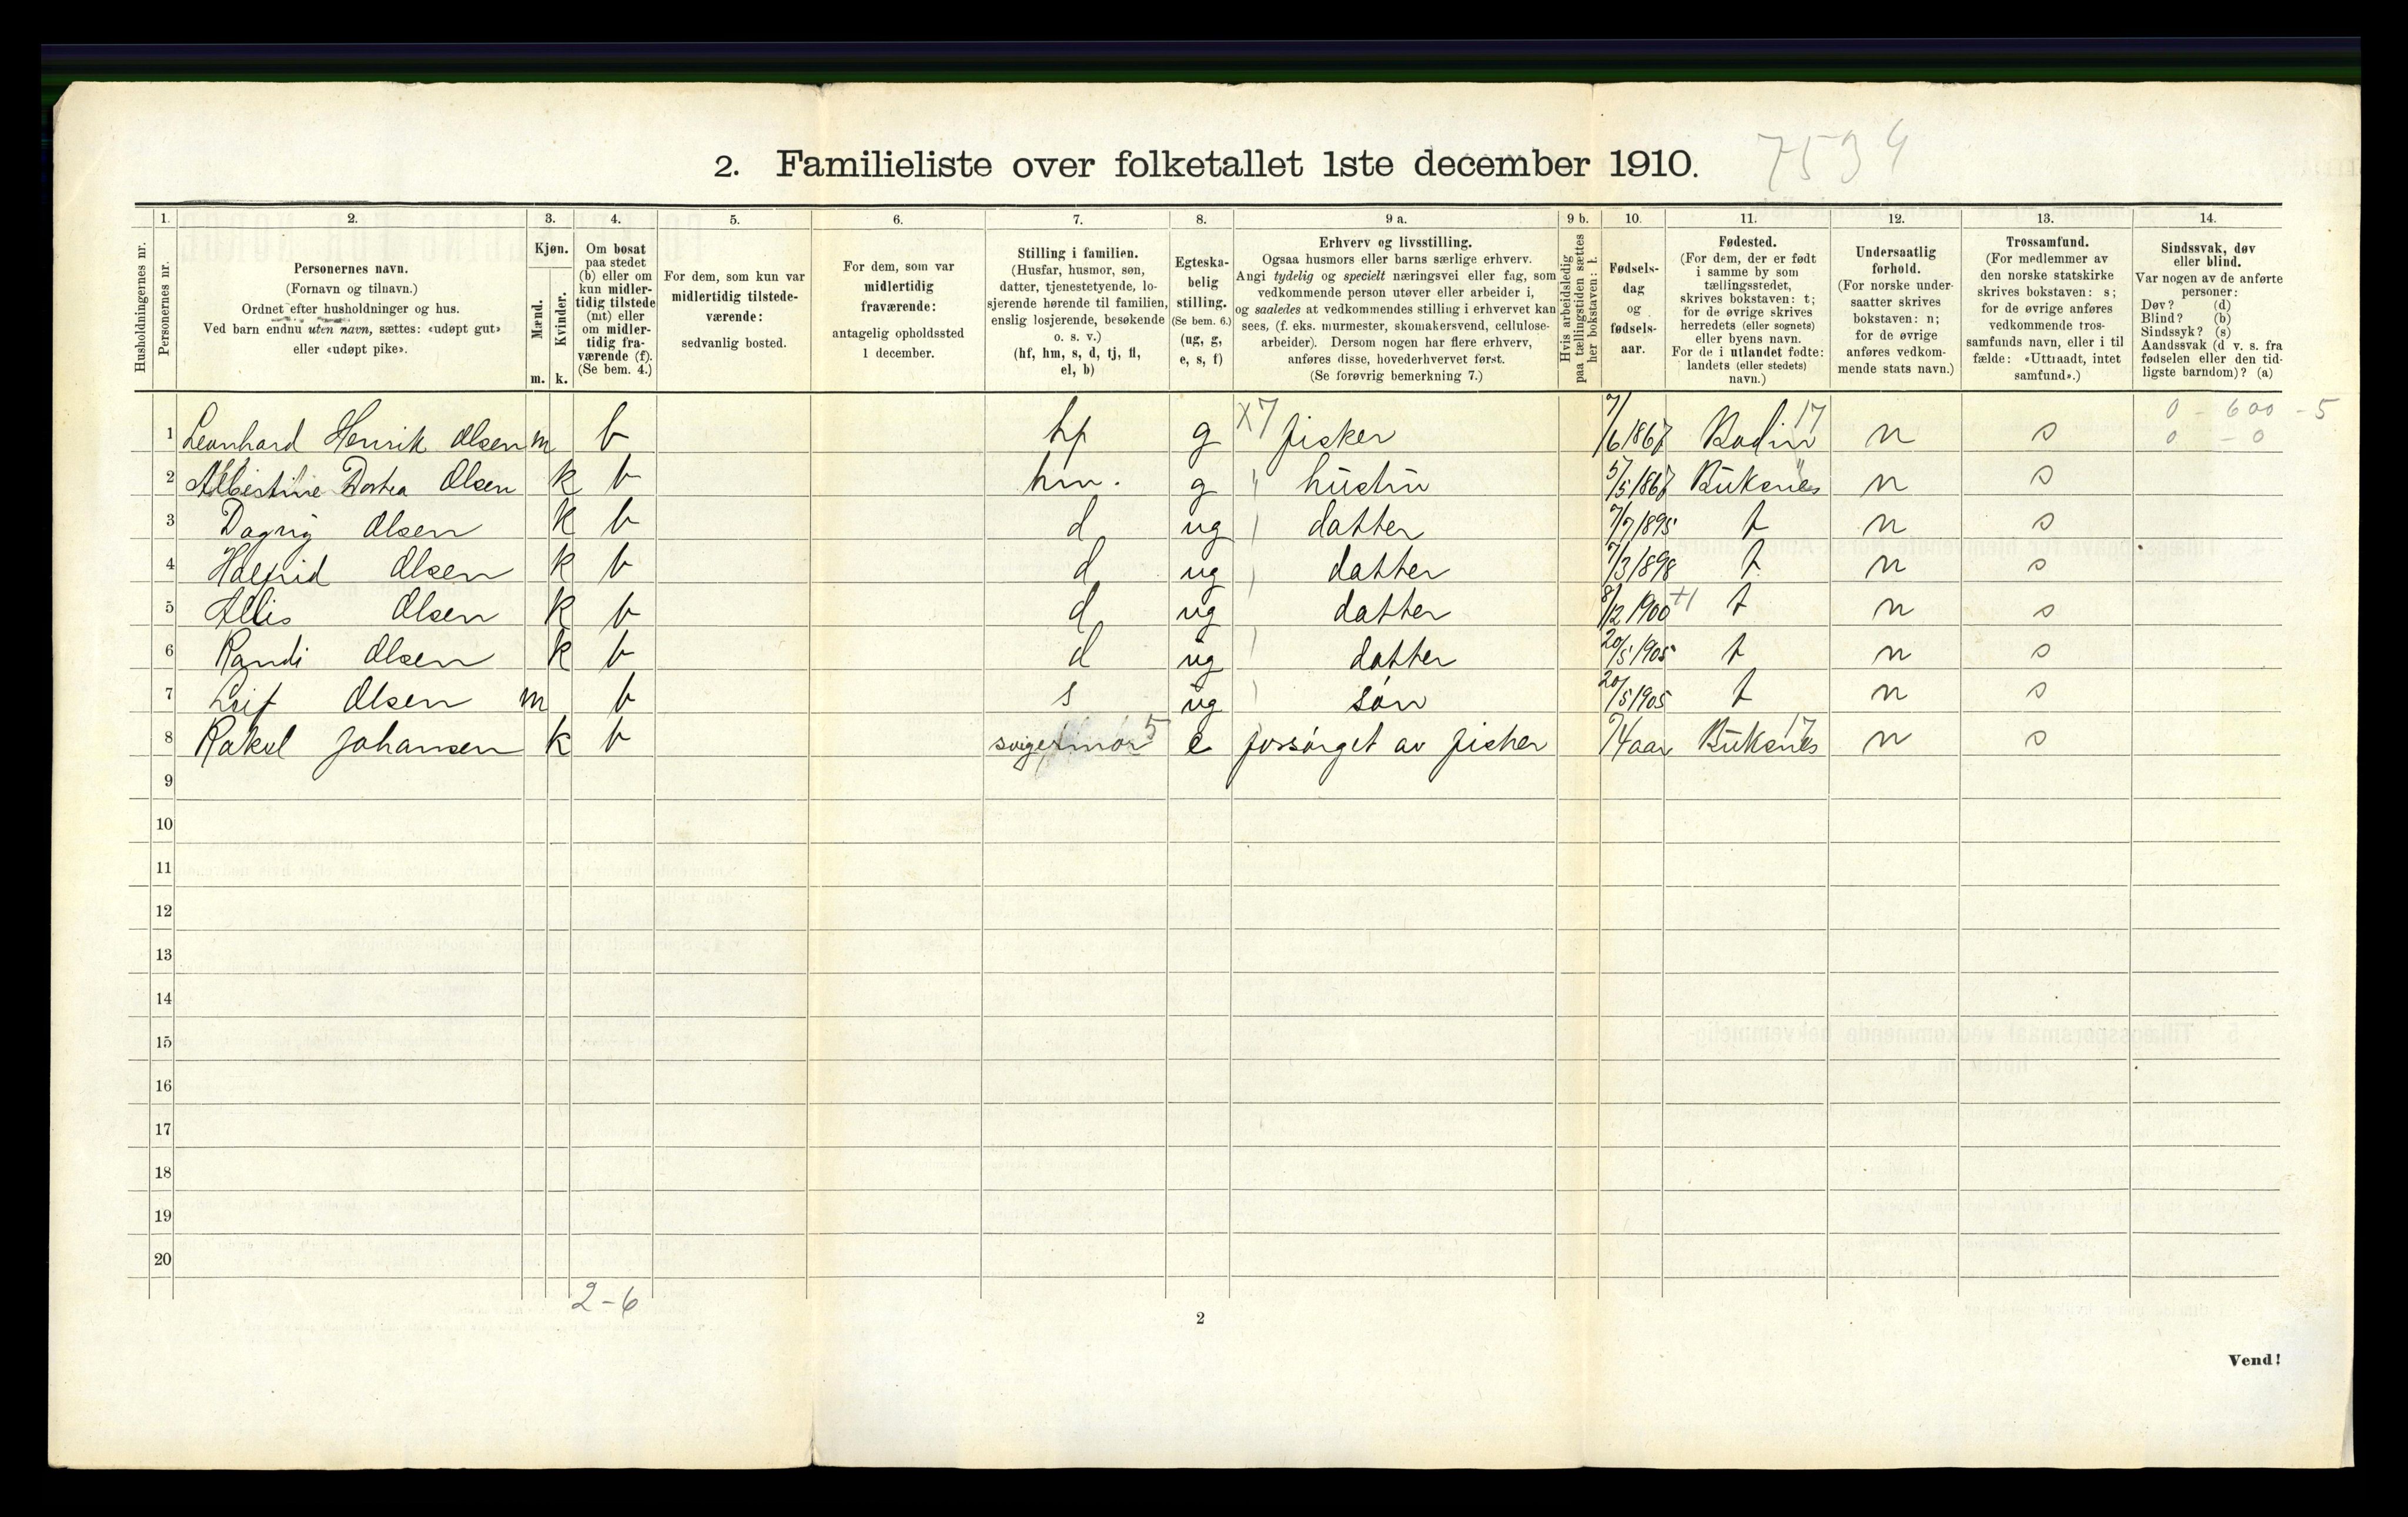 2. Familieliste over folketallet 1ste december 1910. 7534
1. 2. 3. 4. 5. 6. 7. 8. 9 a. 9 b. 10. 11. 12. 13. 14.
Husholdningernes nr.
Personernes nr.
Personernes navn.
(Fornavn og tilnavn.)
Ordnet efter husholdninger og hus.
Ved barn endnu uten navn, sættes: «udøpt gut»
eller «udøpt pike».
Kjøn.
Mænd.
Kvinder.
m. k.
Om bosat
paa stedet
(b) eller om
kun midler-
tidig tilstede
(mt) eller
om midler-
tidig fra-
værende (f).
(Se bem. 4.)
For dem, som kun var
midlertidig tilstede-
værende:
sedvanlig bosted.
For dem, som var
midlertidig
fraværende:
antagelig opholdssted
1 december.
Stilling i familien.
(Husfar, husmor, søn,
datter, tjenestetyende, lo-
sjerende hørende til familien,
enslig losjerende, besøkende
o. s. v.)
(hf, hm, s, d, tj, fl,
el, b)
Egteska-
belig
stilling.
(Se bem. 6.)
(ug, g,
e, s, f)
Erhverv og livsstilling.
Ogsaa husmors eller barns særlige erhverv.
Angi tydelig og specielt næringsvei eller fag, som
vedkommende person utøver eller arbeider i,
og saaledes at vedkommendes stilling i erhvervet kan
sees, (f. eks. murmester, skomakersvend, cellulose-
arbeider). Dersom nogen har flere erhverv,
anføres disse, hovederhvervet først.
(Se forøvrig bemerkning 7.)
Hvis arbeidsledig
paa tællingstiden sættes
her bokstaven: l.
Fødsels-
dag
og
fødsels-
aar.
Fødested.
(For dem, der er født
i samme by som
tællingsstedet,
skrives bokstaven: t;
for de øvrige skrives
herredets (eller sognets)
eller byens navn.
For de i utlandet fødte:
landets (eller stedets)
navn.)
Undersaatlig
forhold.
(For norske under-
saatter skrives
bokstaven: n;
for de øvrige
anføres vedkom-
mende stats navn.)
Trossamfund.
(For medlemmer av
den norske statskirke
skrives bokstaven: s;
for de øvrige anføres
vedkommende tros-
samfunds navn, eller i til
fælde: «Uttraadt, intet
samfund».)
Sindssvak, døv
eller blind.
Var nogen av de anførte
personer:
Døv? (d)
Blind? (b)
Sindssyk? (s)
Aandssvak (d v. s. fra
fødselen eller den tid-
ligste barndom)? (a)
0 - 600 - 5
1 Leonhard Henrik Olsen m b hf g X7 fisker 7/6 1867 Bodin 17 n s 0 - 0
2 Albertine Dortea Olsen k b hm. g " hustru 5/5 1867 Buksnes " n s
3 Dagny Olsen k b d ug datter 7/7 1895 t n s
4 Halfrid Olsen k b d ug datter 7/3 1898 t n s
5 Allis Olsen k b d ug datter 8/12 1900 +1 t n s
6 Randi Olsen k b d ug datter 20/5 1905 t n s
7 Leif Olsen m b s ug søn 20/5 1905 t n s
8 Rakel Johansen k b svigermor 5 e forsørget av fisker 74 aar Buksnes 17 n s
9
10
11
12
13
14
15
16
17
18
19
20
2-6
2
Vend!